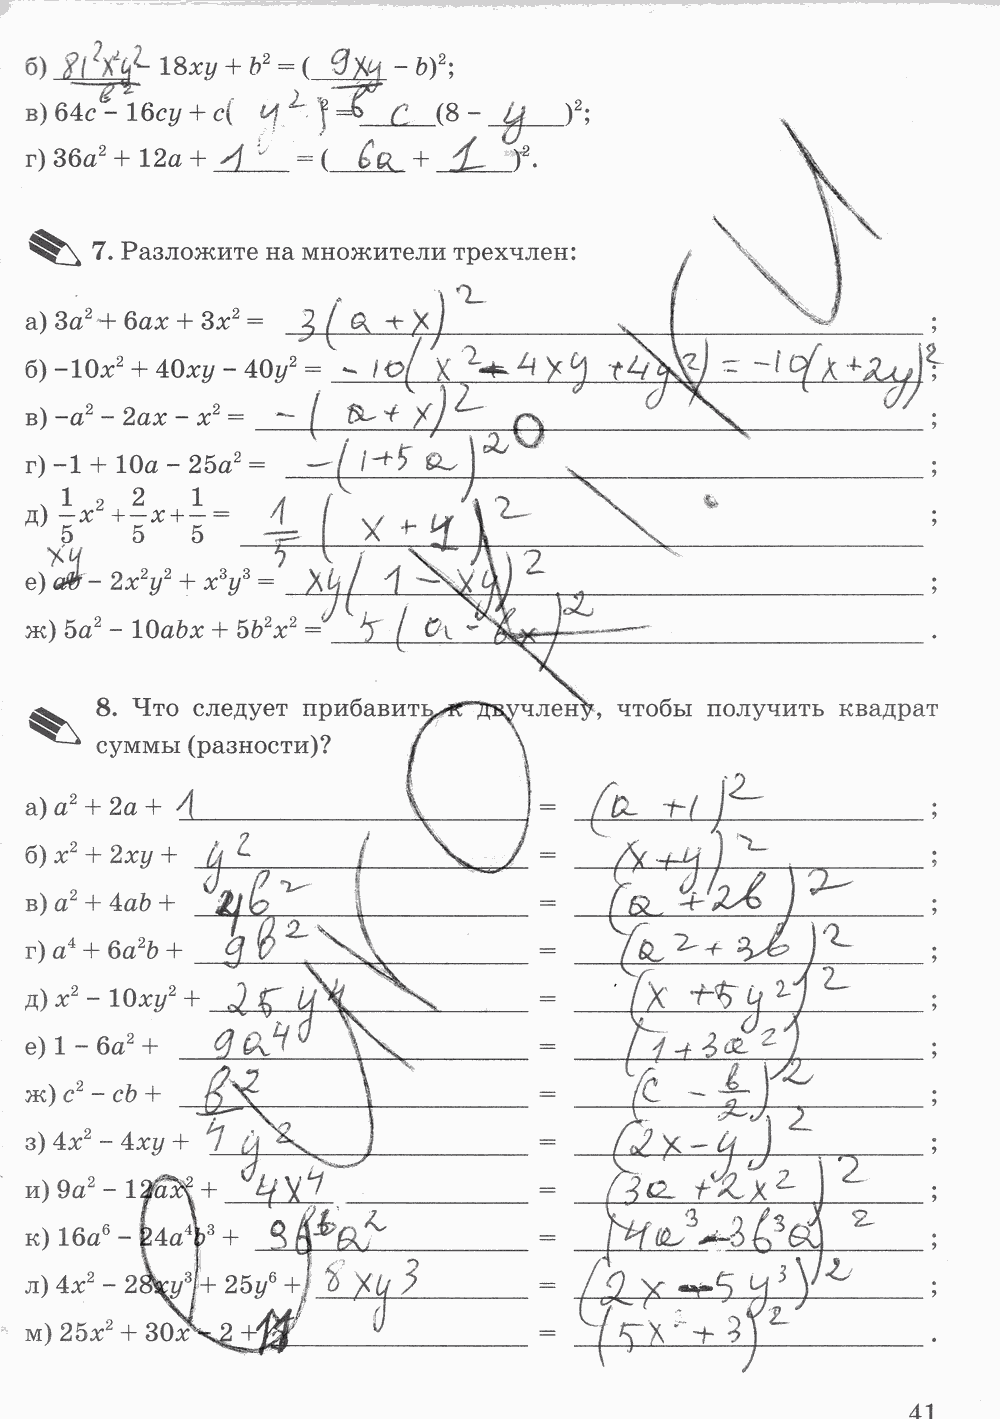 б) 81x²y² - 18xy + b² = ( 9xy - b)²;
в) 64c - 16cy + c( y² ) = c (8 - y )²;
г) 36a² + 12a + 1 = ( 6a + 1 )².
7. Разложите на множители трехчлен:
а) 3a² + 6ax + 3x² = 3(a + x)² ;
б) -10x² + 40xy - 40y² = -10(x² - 4xy + 4y²) = -10(x + 2y)² ;
в) -a² - 2ax - x² = -(a + x)² ;
г) -1 + 10a - 25a² = -(1 + 5a)² ;
д) 1/5 x² + 2/5 x + 1/5 = 1/5 (x + 1)² ;
е) xy - 2x²y² + x³y³ = xy(1 - xy)² ;
ж) 5a² - 10abx + 5b²x² = 5(a - bx)² .
8. Что следует прибавить к двучлену, чтобы получить квадрат
суммы (разности)?
а) a² + 2a + 1 = (a + 1)² ;
б) x² + 2xy + y² = (x + y)² ;
в) a² + 4ab + 4b² = (a + 2b)² ;
г) a⁴ + 6a²b + 9b² = (a² + 3b)² ;
д) x² - 10xy² + 25y⁴ = (x + 5y²)² ;
е) 1 - 6a² + 9a⁴ = (1 + 3a²)² ;
ж) c² - cb + b²/4 = (c - b/2)² ;
з) 4x² - 4xy + y² = (2x - y)² ;
и) 9a² - 12ax² + 4x⁴ = (3a + 2x²)² ;
к) 16a⁶ - 24a⁴b³ + 9b⁶a² = (4a³ - 3b³a)² ;
л) 4x² - 28xy³ + 25y⁶ + 8xy³ = (2x - 5y³)² ;
м) 25x² + 30x - 2 + 11 = (5x + 3)² .
41